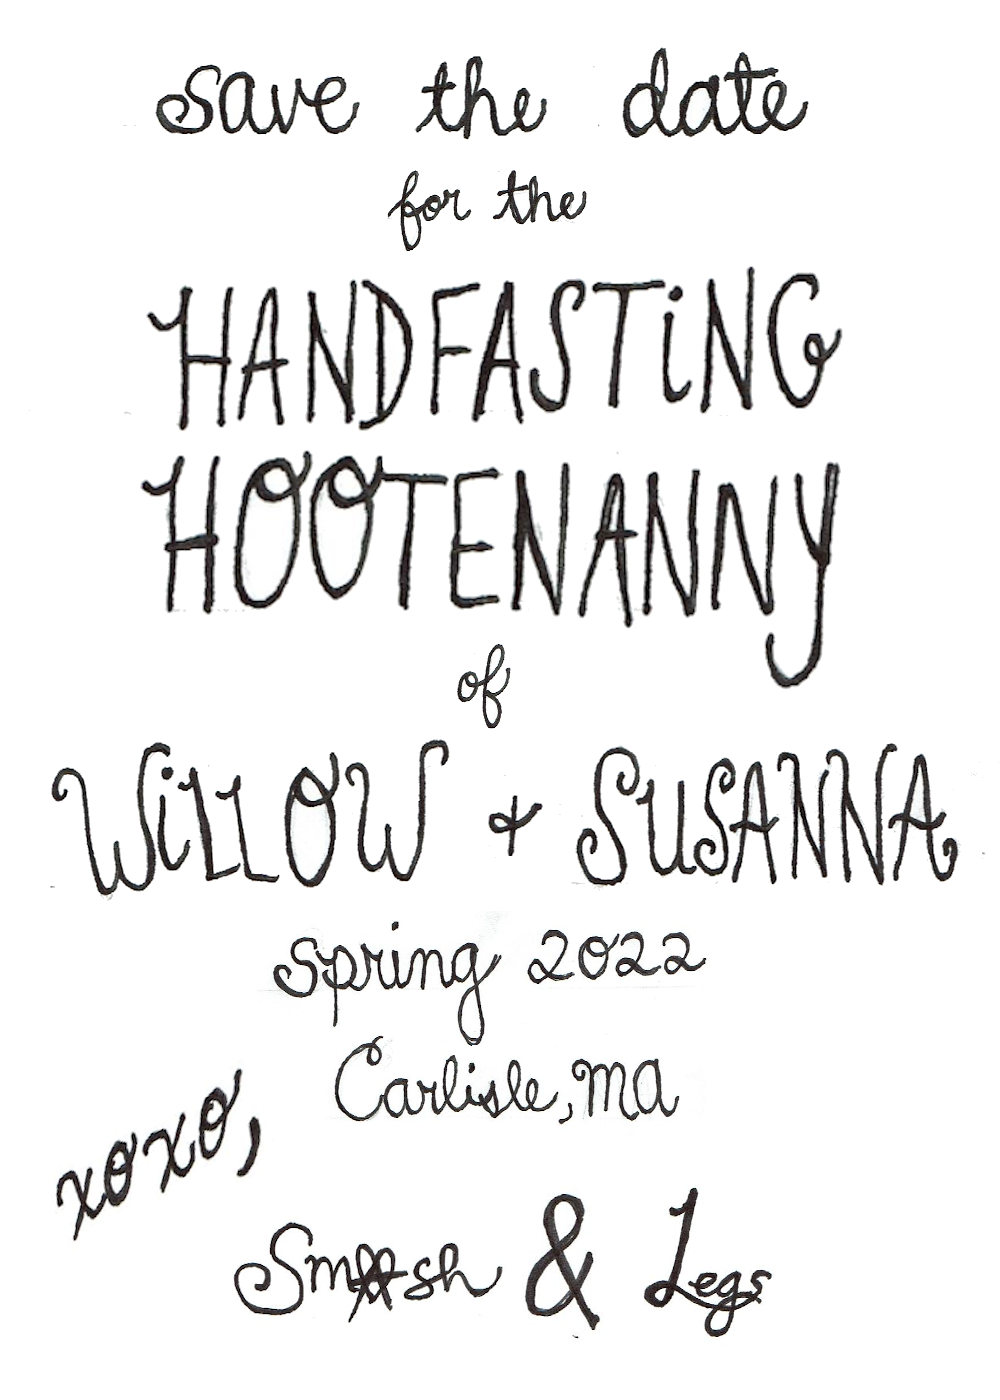 save the date
for the
HANDFASTiNG
HOOTENANNY
of
WiLLOW + SUSANNA
spring 2022
Carlisle, MA
xoxo,
Smoosh & Legs